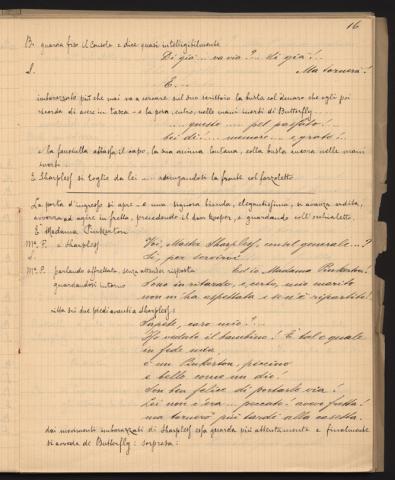 16
B. guarda fiso il Console e dice quasi intelligibilmente
Di già... va via?... di già!...
S. Ma tornerà!
E...
imbarazzato più che mai va a cercare sul suo scrittoio la busta col denaro che egli poi
ricorda di avere in tasca - e la posa, entro, nelle mani inerti di Butterfly
...... questo .... pel passato!...
sei di!.... memore.... e grato!...
e la fanciulla abbassa il capo, la sua anima lontana, colla busta ancora nelle mani
inerti.
E Sharpless si toglie da lei — asciugandosi la fronte col fazzoletto
La porta d'ingresso si apre - e una signora bionda, elegantissima, si avanza ardita,
avvezza ad agire in fretta, precedendo il don Cooper, e guardando coll'occhialetto.
E' Madama Pinkerton
Me. P. a Sharpless Voi, Mastro Sharpless, consol generale...?
S. Sì, per servirvi
Me. P. parlando affrettata, senza attender risposta Ed io Madama Pinkerton!
guardandosi intorno Sono in ritardo, e, certo, mio marito
non m'ha aspettata e se n'è ripartito!
ritta sui due piedi avanti a Sharpless:
Sapete, caro mio?...
Ho veduto il bambino! È tal e quale
in fede mia,
è un Pinkerton, piccino
e bello come un dio!
Son ben felice di portarlo via!
Lei non c'era... peccato! avevo fretta!
ma tornerò più tardi alla casetta.
dai movimenti imbarazzati di Sharpless essa guarda più attentamente e finalmente
si avvede di Butterfly: sorpresa: